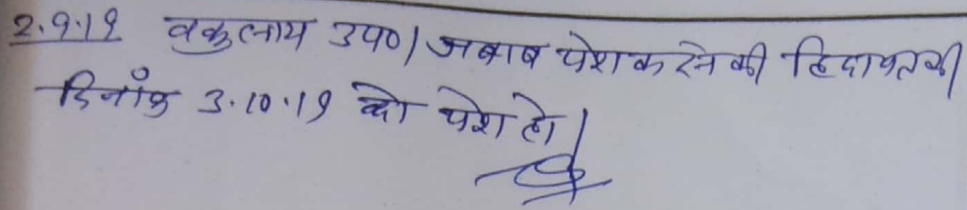 2.9.19 वकुलाय उप0। जबाब पेश करने की हिदायत की
दिनाँक 3.10.19 को पेश हो।